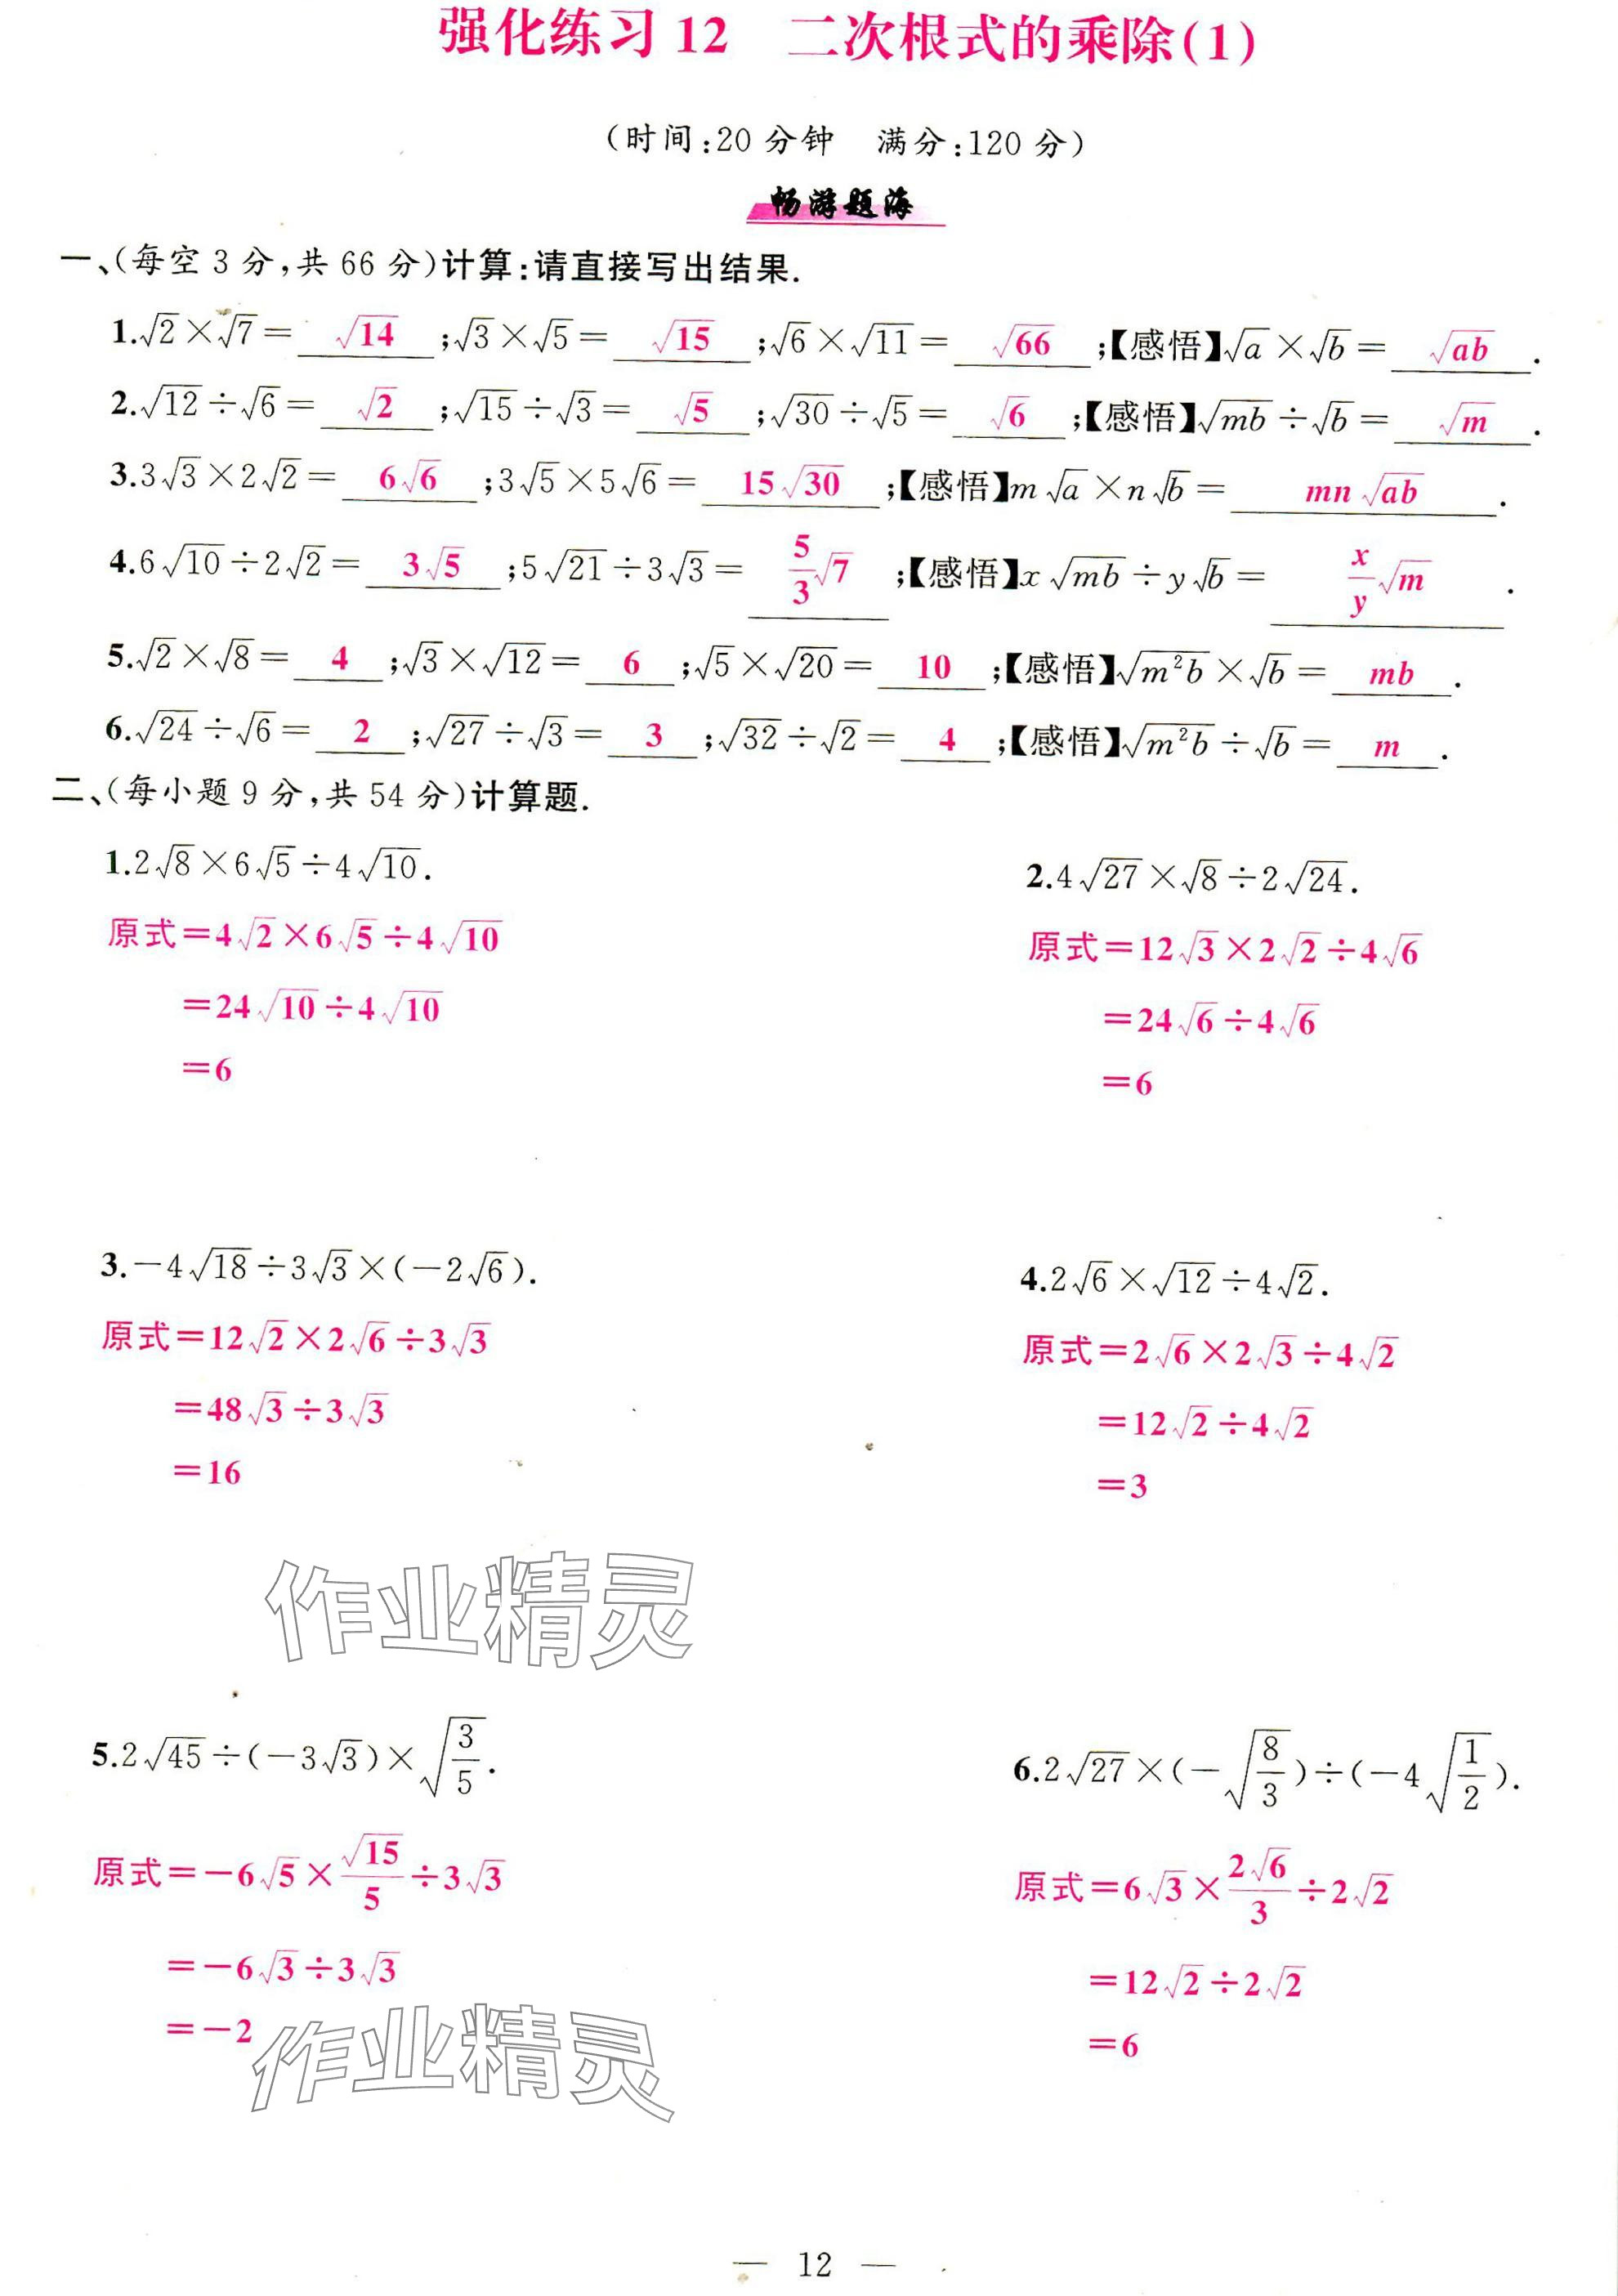 强化练习12　二次根式的乘除(1)
(时间:20分钟　满分:120分)
畅游题海
一、(每空3分,共66分)计算:请直接写出结果.
1.√2×√7=√14;√3×√5=√15;√6×√11=√66;【感悟】√a×√b=√ab.
2.√12÷√6=√2;√15÷√3=√5;√30÷√5=√6;【感悟】√mb÷√b=√m.
3.3√3×2√2=6√6;3√5×5√6=15√30;【感悟】m√a×n√b=mn√ab.
4.6√10÷2√2=3√5;5√21÷3√3=5/3√7;【感悟】x√mb÷y√b=x/y√m.
5.√2×√8=4;√3×√12=6;√5×√20=10;【感悟】√m²b×√b=mb.
6.√24÷√6=2;√27÷√3=3;√32÷√2=4;【感悟】√m²b÷√b=m.
二、(每小题9分,共54分)计算题.
1.2√8×6√5÷4√10.
原式=4√2×6√5÷4√10
=24√10÷4√10
=6
2.4√27×√8÷2√24.
原式=12√3×2√2÷4√6
=24√6÷4√6
=6
3.-4√18÷3√3×(-2√6).
原式=12√2×2√6÷3√3
=48√3÷3√3
=16
4.2√6×√12÷4√2.
原式=2√6×2√3÷4√2
=12√2÷4√2
=3
作业精灵
5.2√45÷(-3√3)×√(3/5).
原式=-6√5×√15/5÷3√3
=-6√3÷3√3
=-2
6.2√27×(-√(8/3))÷(-4√(1/2)).
原式=6√3×2√6/3÷2√2
=12√2÷2√2
=6
作业精灵
— 12 —